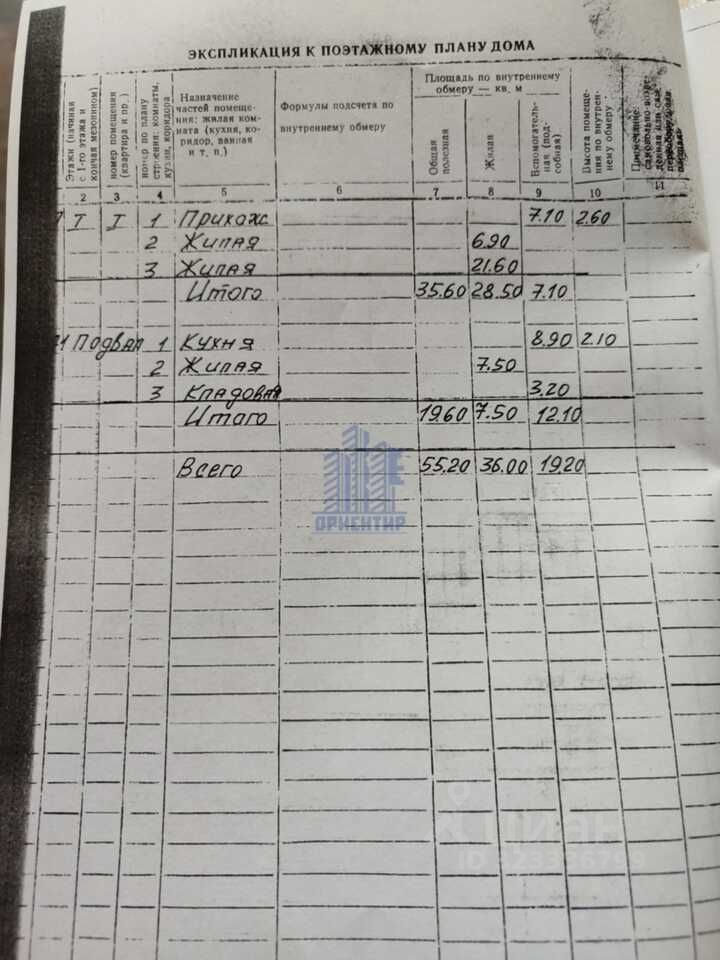 ЭКСПЛИКАЦИЯ К ПОЭТАЖНОМУ ПЛАНУ ДОМА
Этажи (начиная с 1-го этажа и кончая мезонином)
номер помещения (квартира и пр.)
номер по плану строения: комнаты, кухни, коридора
Назначение частей помещения: жилая комната (кухня, коридор, ванная и т. п.)
Формулы подсчета по внутреннему обмеру
Площадь по внутреннему обмеру — кв. м
Общая полезная
Жилая
Вспомогательная (подсобная)
Высота помещения по внутреннему обмеру
Примечание:
2 3 4 5 6 7 8 9 10 11
I I 1 Прихож 7.10 2.60
2 Жилая 6.90
3 Жилая 21.60
Итого 35.60 28.50 7.10
Подвал 1 Кухня 8.90 2.10
2 Жилая 7.50
3 Кладовая 3.20
Итого 19.60 7.50 12.10
Всего 55.20 36.00 19.20
ОРИЕНТИР
Циан